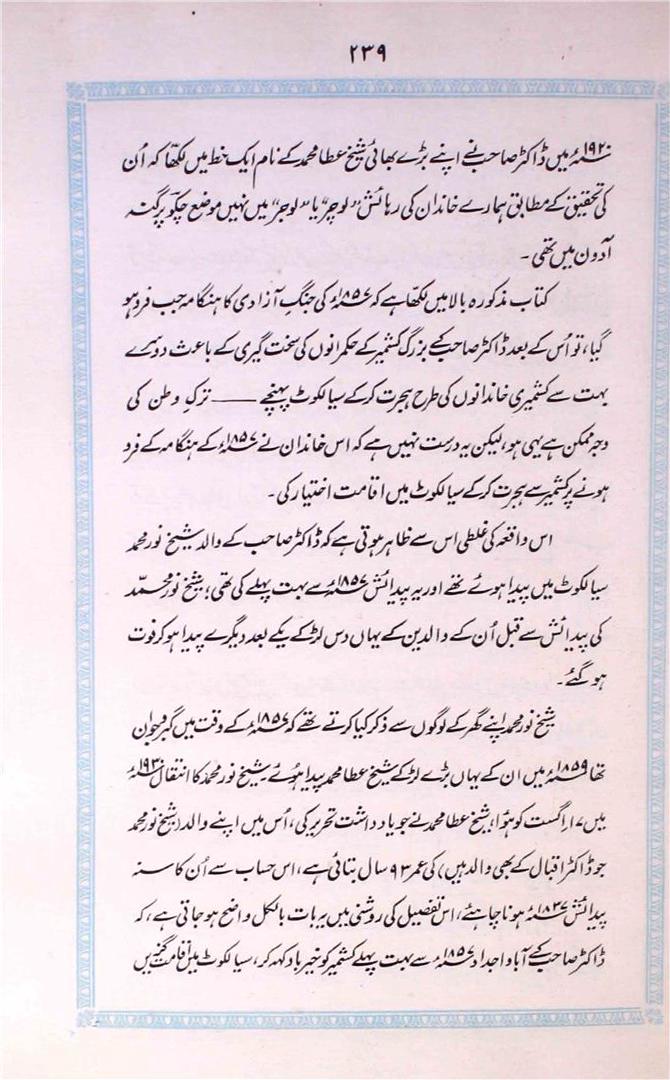 ۲۳۹
۱۹۲۰ء میں ڈاکٹر صاحب نے اپنے بڑے بھائی شیخ عطا محمد کے نام ایک خط میں لکھا کہ اُن
کی تحقیق کے مطابق ہمارے خاندان کی رہائش "لوچر" یا "لوجر" میں نہیں موضع چکو پرگنہ
آدون میں تھی۔
کتاب مذکورہ بالا میں لکھا ہے کہ ۱۸۵۷ء کی جنگِ آزادی کا ہنگامہ جب فرو ہو
گیا، تو اُس کے بعد ڈاکٹر صاحب کے بزرگ کشمیر کے حکمرانوں کی سخت گیری کے باعث دوسرے
بہت سے کشمیری خاندانوں کی طرح ہجرت کر کے سیالکوٹ پہنچے —— ترکِ وطن کی
وجہ ممکن ہے یہی ہو، لیکن یہ درست نہیں ہے کہ اس خاندان نے ۱۸۵۷ء کے ہنگامہ کے فرو
ہونے پر کشمیر سے ہجرت کر کے سیالکوٹ میں اقامت اختیار کی۔
اس واقعہ کی غلطی اس سے ظاہر ہوتی ہے کہ ڈاکٹر صاحب کے والد شیخ نور محمد
سیالکوٹ میں پیدا ہوئے تھے اور یہ پیدائش ۱۸۵۷ء سے بہت پہلے کی تھی؛ شیخ نور محمّد
کی پیدائش سے قبل اُن کے والدین کے یہاں دس لڑکے یکے بعد دیگرے پیدا ہو کر فوت
ہو گئے۔
شیخ نور محمد اپنے گھر کے لوگوں سے ذکر کیا کرتے تھے کہ ۱۸۵۷ء کے وقت میں گبرو جوان
تھا ۱۸۵۹ء میں ان کے یہاں بڑے لڑکے شیخ عطا محمد پیدا ہوئے شیخ نور محمد کا انتقال ۱۹۳۰ء
میں ۱۷ اگست کو ہُوا، شیخ عطا محمد نے جو یادداشت تحریر کی، اُس میں اپنے والد (شیخ نور محمد
جو ڈاکٹر اقبال کے بھی والد ہیں) کی عمر ۹۳ سال بتائی ہے، اس حساب سے اُن کا سنہ
پیدائش ۱۸۳۷ء ہونا چاہئے، اس تفصیل کی روشنی میں یہ بات بالکل واضح ہو جاتی ہے، کہ
ڈاکٹر صاحب کے آباو اجداد ۱۸۵۷ء سے بہت پہلے کشمیر کو خیر باد کہہ کر، سیالکوٹ میں اقامت گزیں